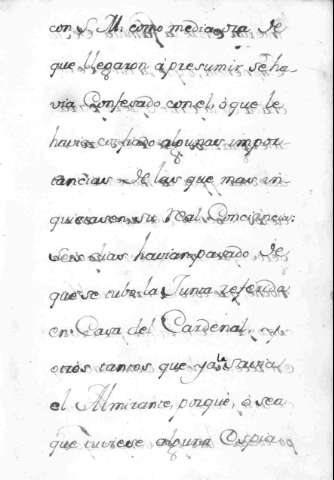 con S. M. como media ora de
que llegaron á presumir se ha
via Confesado con el, ò que le
havia confiado algunas impor
tancias de las que mas in
quietasen su Real Conciencia:
Seis dias havian pasado de
que se tubo la Junta referida
en Casa del Cardenal, y
otros tantos que ya la savia
el Almirante, porque, ò sea
que tuviese alguna Espia